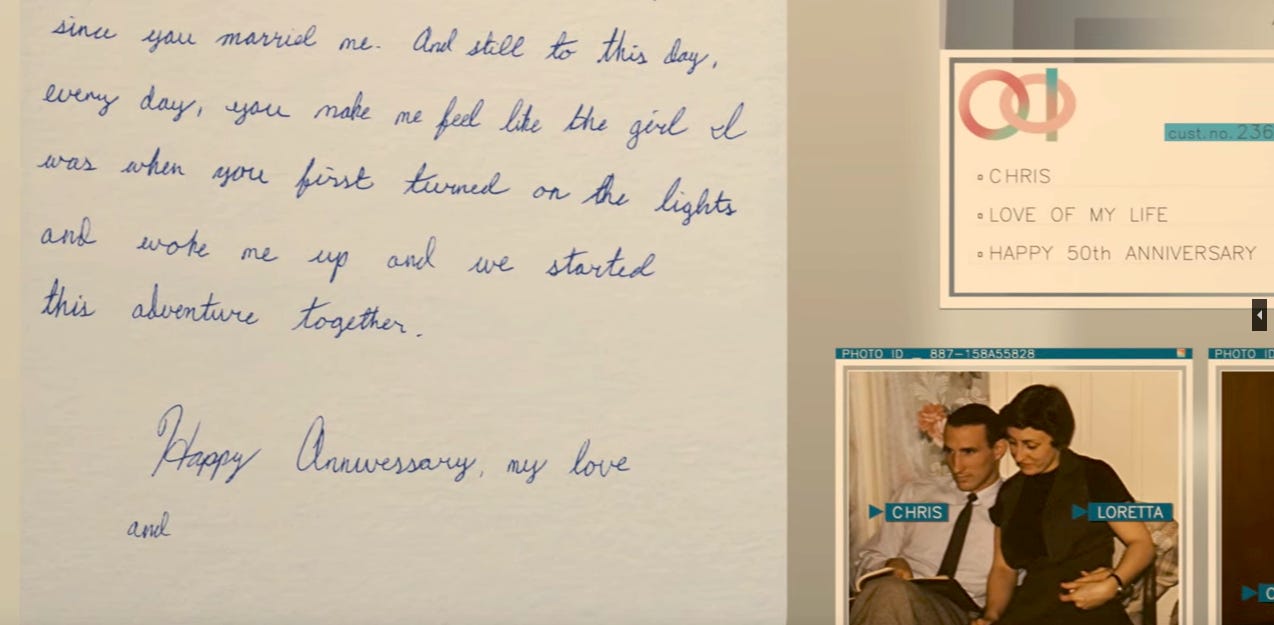 since you married me. And still to this day,
every day, you make me feel like the girl I
was when you first turned on the lights
and woke me up and we started
this adventure together.
Happy Anniversary, my love
and
cust.no. 236
CHRIS
LOVE OF MY LIFE
HAPPY 50th ANNIVERSARY
PHOTO ID _ 887-158A55828
CHRIS
LORETTA
PHOTO ID